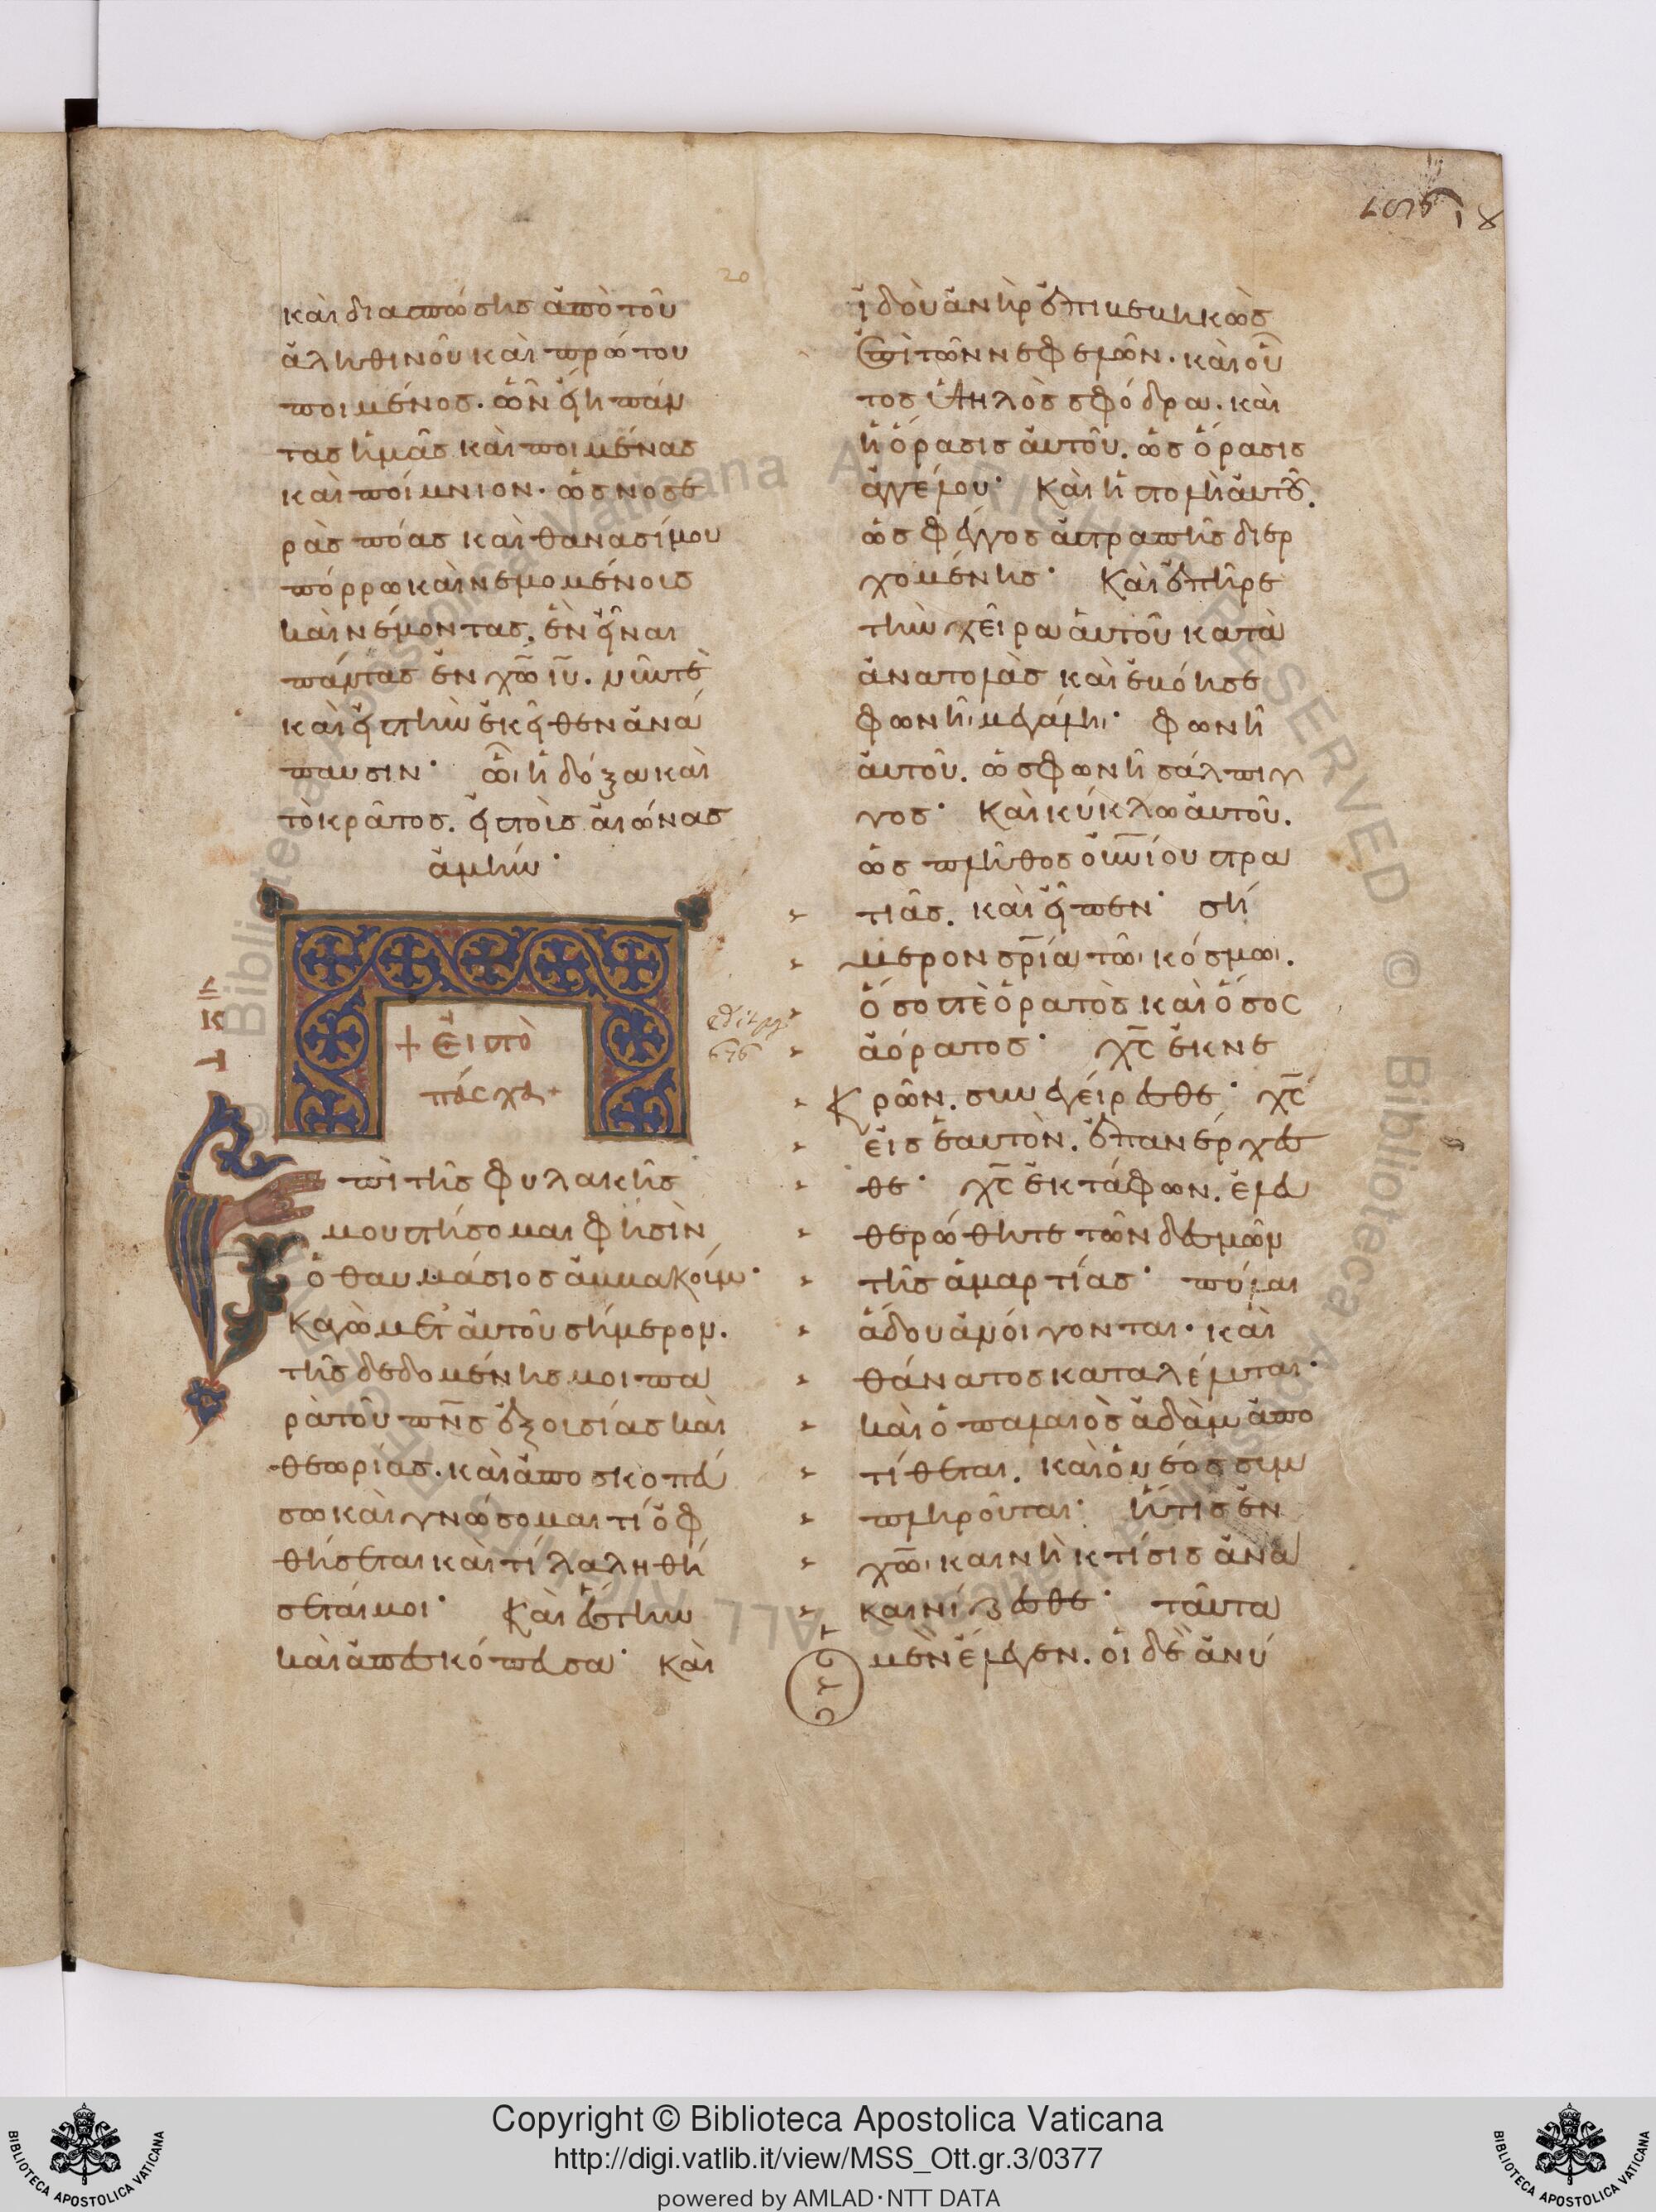 καὶ διασπώσης ἀπὸ τοῦ
ἀληθινοῦ καὶ πρώτου
ποιμένος. ὧν εἴη πάν
τας ἡμᾶς καὶ ποιμένας
καὶ ποίμνιον. ὡς νοσε
ρᾶς πόας καὶ θανασίμου
πόρρω καὶ νεμομένοις
καὶ νέμοντας. ἓν εἶναι
πάντας ἐν χῶ ἰῦ. νῦν τὲ
καὶ εἰς τὴν ἐκεῖθεν ἀνά
παυσιν· ὧι ἡ δόξα καὶ
τὸ κράτος. εἰς τοὺς αἰῶνας
ἀμήν·
+ Εἰς τὸ
πάσχα +
πὶ τῆς φυλακῆς
μου στήσομαι φησὶν
ὁ θαυμάσιος ἀμμακούμ·
Καγὼ μετ' αὐτοῦ σήμερον.
τῆς δεδομένης μοι πα
ρὰ τοῦ πνς ἐξουσίας καὶ
θεωρίας. καὶ ἀποσκοπεύ
σω καὶ γνώσομαι τί ὀφ
θήσεται καὶ τί λαληθή
σεταί μοι· Καὶ ἔστην
καὶ ἀπεσκόπευσα· καὶ
20
ἰδοὺ ἀνὴρ ἐπιβεβηκὼς
ἐπὶ τῶν νεφελῶν. καὶ οὗ
τος ὑψηλὸς σφόδρα. καὶ
ἡ ὅρασις αὐτοῦ. ὡς ὅρασις
ἀγγέλου· Καὶ ἡ στολὴ αὐτοῦ.
ὡς φέγγος ἀστραπῆς διερ
χομένης· Καὶ ἐπῆρε
τὴν χεῖρα αὐτοῦ κατὰ
ἀνατολὰς καὶ ἐβόησε
φωνῆι μεγάληι· φωνὴ
αὐτοῦ. ὡς φωνὴ σάλπιγ
γος· Καὶ κύκλω αὐτοῦ.
ὡς πλῆθος οὐνίου στρα
τιᾶς. καὶ εἶπεν· σή
μερον σρία τῶι κόσμωι.
ὅσος τὲ ὁρατὸς καὶ ὅσος
ἀόρατος· χς ἐκ νε
Κρῶν. συνεγείρεσθε· χς
εἰς ἑαυτὸν. ἐπανέρχεσ
θε· χς ἐκ τάφων. ἐλευ
θερώθητε τῶν δεσμῶν
τῆς ἁμαρτίας· πύλαι
ἅδου ἀνοίγονται. καὶ
θάνατος καταλύεται·
καὶ ὁ παλαιὸς ἀδὰμ ἀπο
τίθεται. καὶ ὁ νέος συμ
πληροῦται· εἴ τις ἐν
χῶι καινὴ κτίσις ἀνα
καινίζεσθε· ταῦτα
μὲν ἔλεγεν. οἱ δὲ ἀνύ
Copyright © Biblioteca Apostolica Vaticana
http://digi.vatlib.it/view/MSS_Ott.gr.3/0377
powered by AMLAD·NTT DATA
BIBLIOTECA APOSTOLICA VATICANA
BIBLIOTECA APOSTOLICA VATICANA